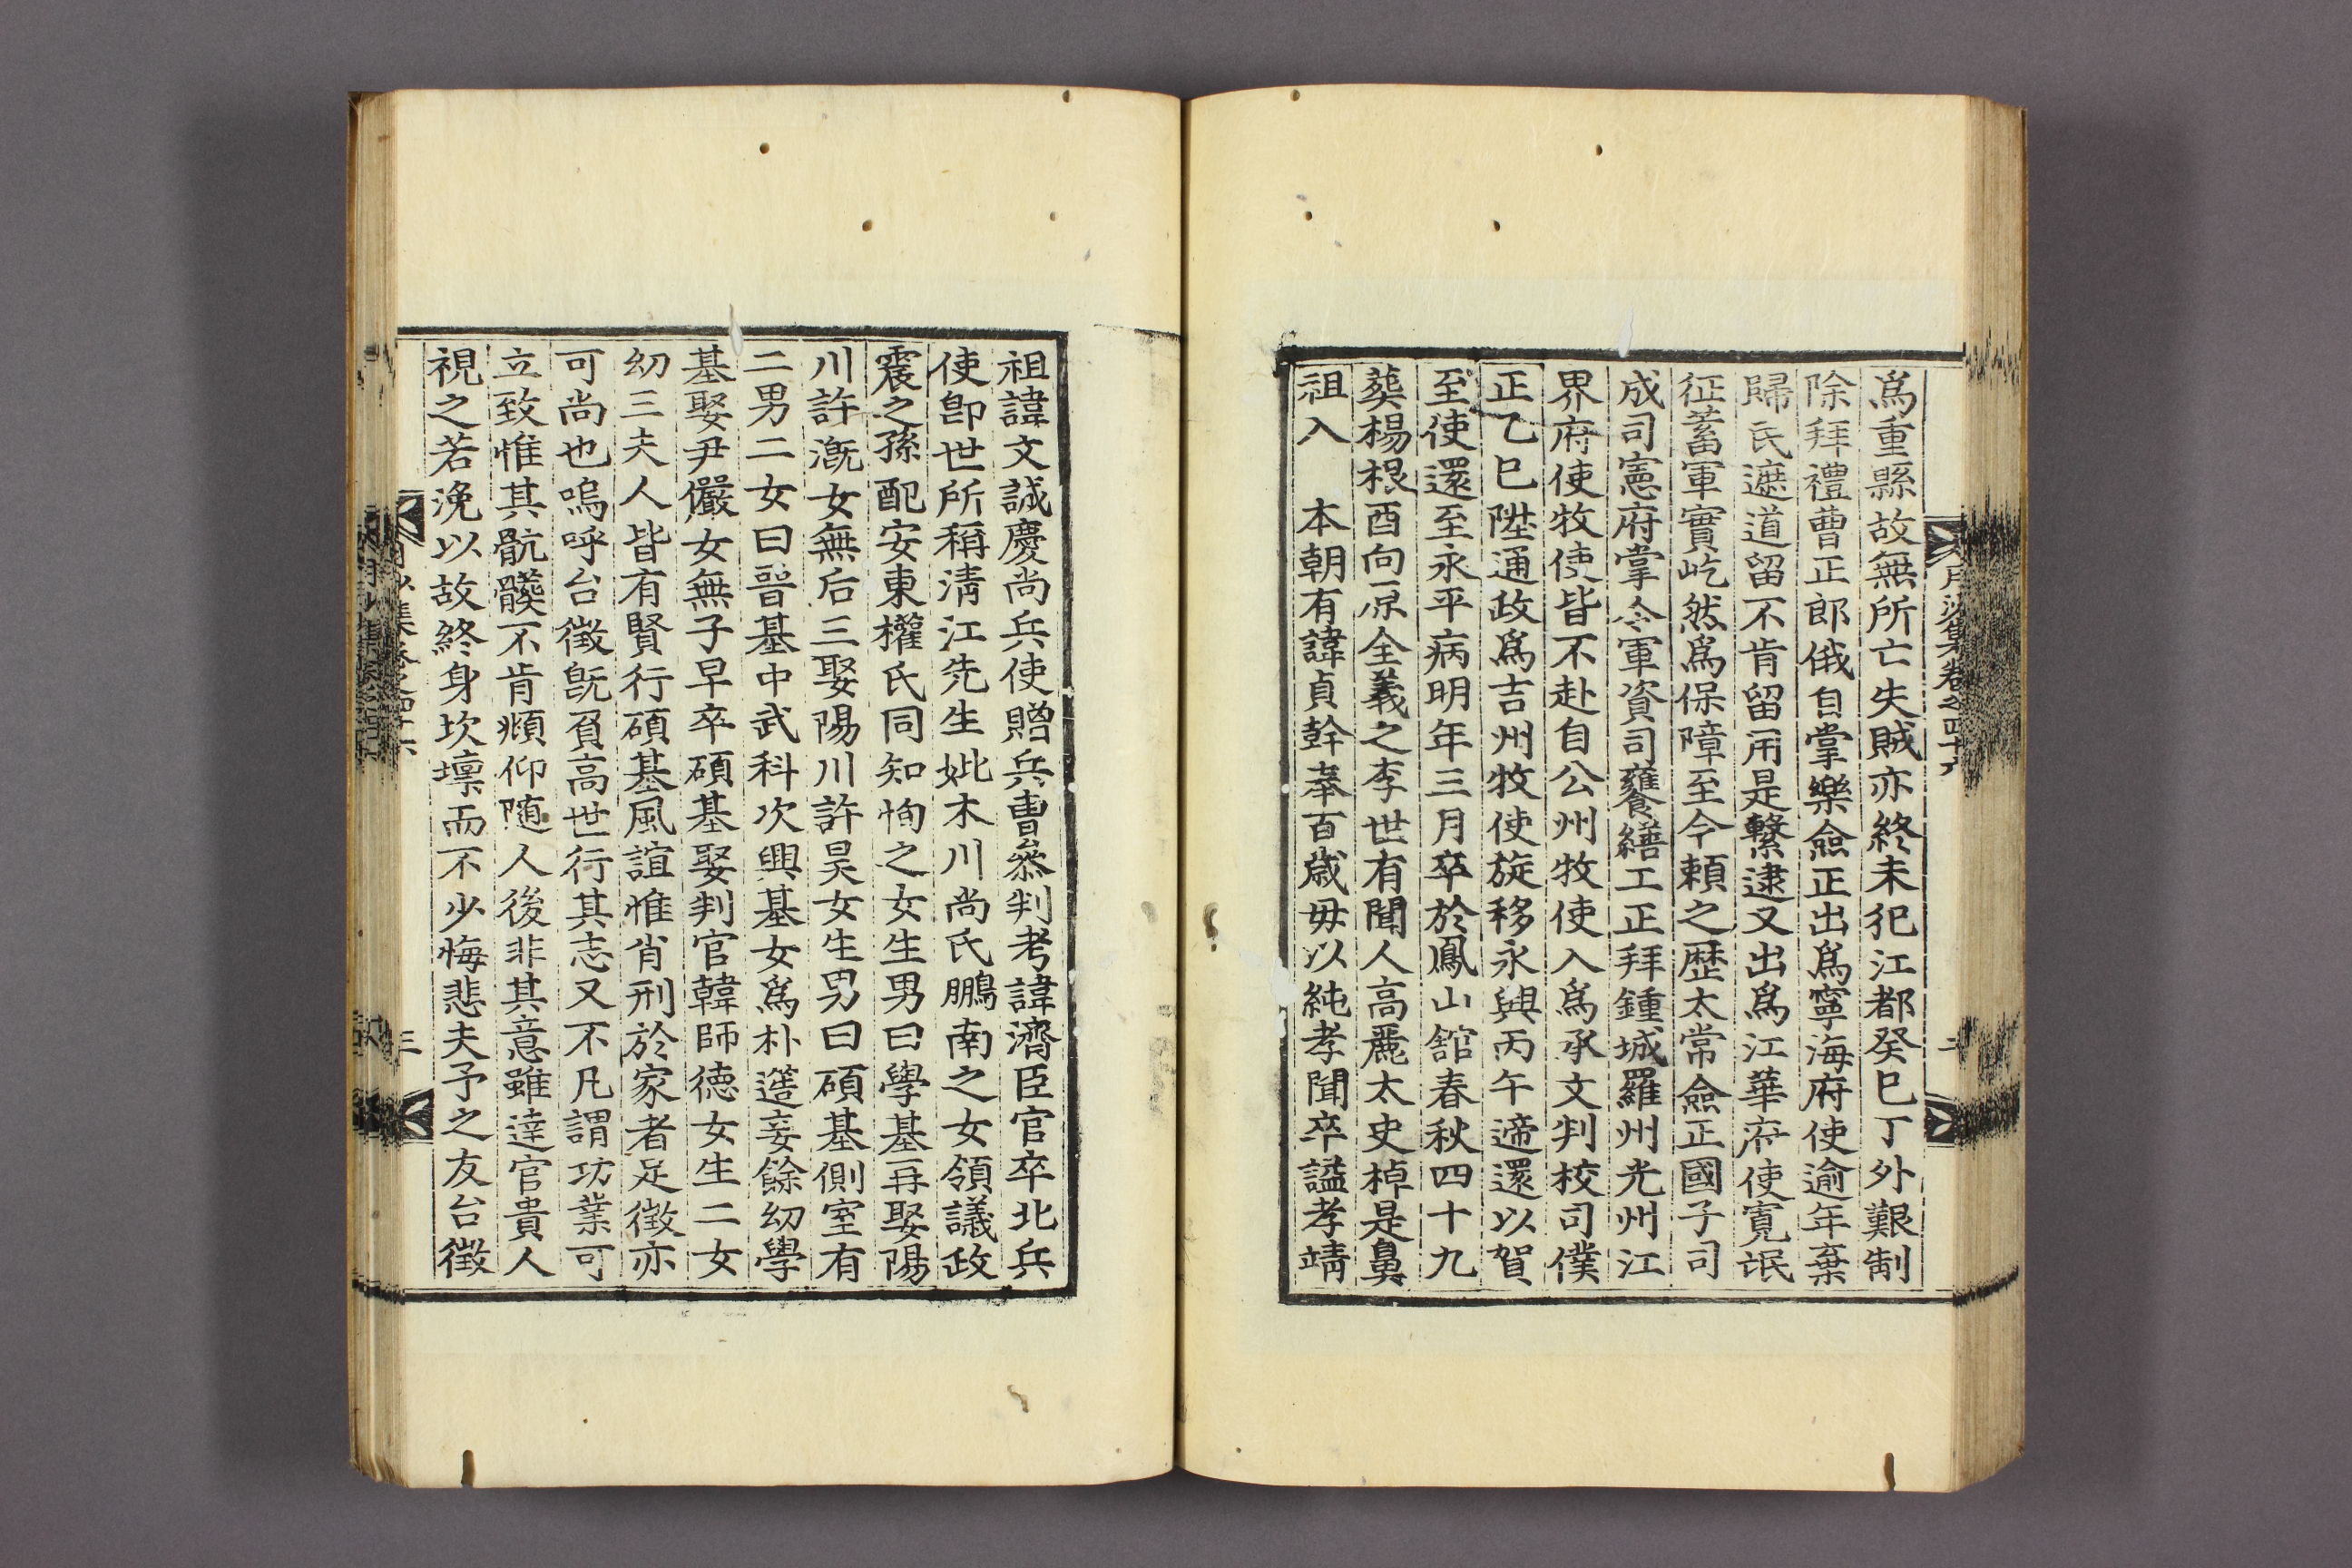 月沙集卷之四十六
二
爲重縣故無所亡失賊亦終未犯江都癸巳丁外艱制
除拜禮曹正郎俄自掌樂僉正出爲寧海府使逾年棄
歸民遮道留不肯留用是繫逮又出爲江華府使寬氓
征蓄軍實屹然爲保障至今賴之歷太常僉正國子司
成司憲府掌令軍資司饔繕工正拜鍾城羅州光州江
界府使牧使皆不赴自公州牧使入爲承文判校司僕
正乙巳陞通政爲吉州牧使旋移永興丙午遞還以賀
至使還至永平病明年三月卒於鳳山舘春秋四十九
葬楊根酉向原全義之李世有聞人高麗太史棹是鼻
祖入 本朝有諱貞幹奉百歲毋以純孝聞卒謚孝靖
祖諱文誠慶尚兵使贈兵曹叅判考諱濟臣官卒北兵
使卽世所稱淸江先生妣木川尚氏鵬南之女領議政
震之孫配安東權氏同知恂之女生男曰學基再娶陽
川許漑女無后三娶陽川許昊女生男曰碩基側室有
二男二女曰晉基中武科次興基女爲朴簉妾餘幼學
基娶尹儼女無子早卒碩基娶判官韓師德女生二女
幼三夫人皆有賢行碩基風誼惟肖刑於家者足徵亦
可尚也嗚呼台徵旣負高世行其志又不凡謂功業可
立致惟其骯髒不肯頫仰隨人後非其意雖達官貴人
視之若浼以故終身坎壈而不少悔悲夫予之友台徵
月沙集卷之四十六
三